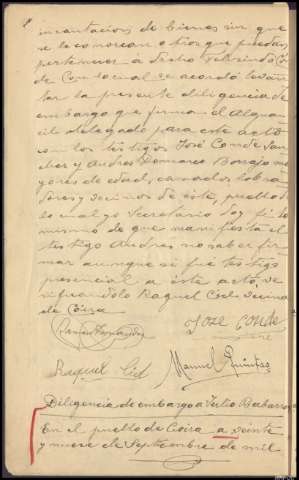 incautacion de bienes sin que
se le conozcan otros que puedan
pertenecer a dicho
de Con lo cual se acordó levan
tar la presente diligencia de
embargo que firma el Algua
cil delegado para este acto
con los testigos José Conde San
chez y Andres Domarco Borrajo ma
yores de edad, casados, labra
dores y vecinos de este, pueblo de
lo cual yo Secretario doy fé lo
mismo de que manifiesta el
testigo Andres no saber fir
mar aunque si fué testigo
presencial a este acto,
Raquel Cid vecina
de Coira
Jose Conde
Raquel Cid
Manuel
Diligencia de embargo a
En el pueblo de Coira a veinte
y nueve de Septiembre de mil